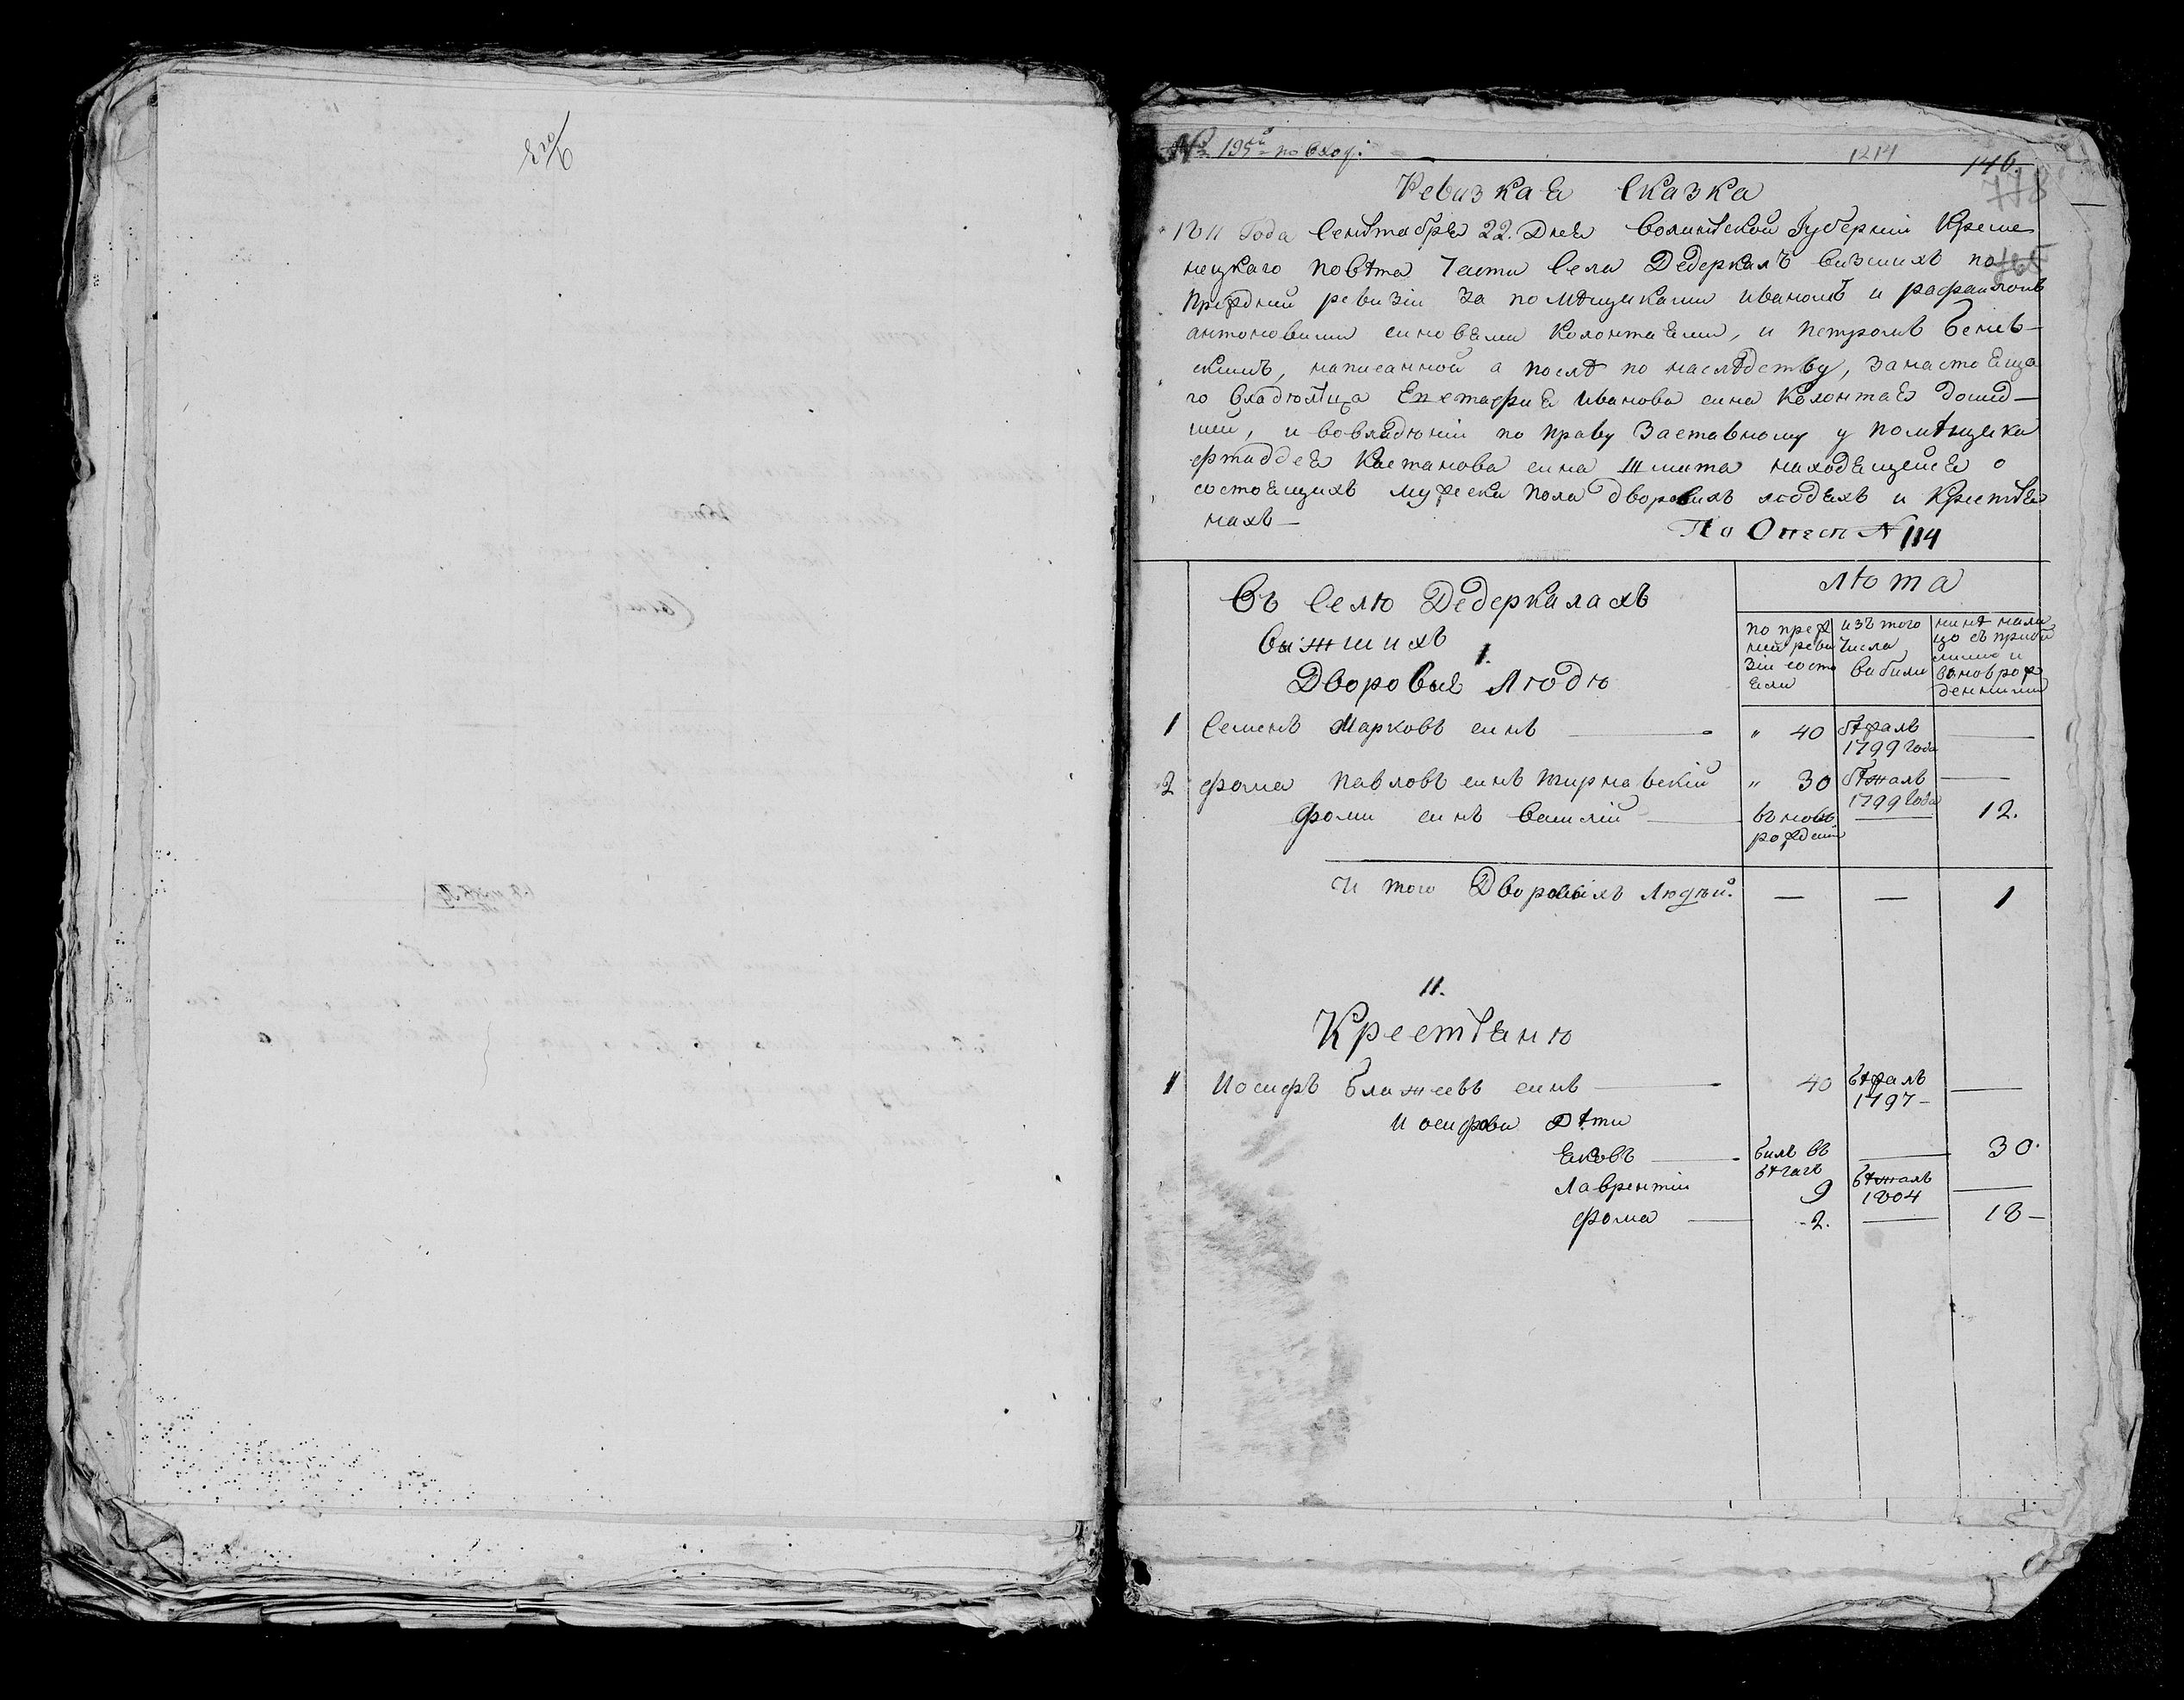 № 195й по вход:
1214
146.
778
Ревизкая Сказка
1811 Года Сентября 22. Дня Волинской Губернии Креме
нецкаго повѣта Части Села Дедеркалъ бившихъ по
Преждней ревизіи за помѣщиками иваномъ и рафаиломъ
антоновими синовями Колонтаями, и петромъ Бенев-
скимъ, написанной а послѣ по наслѣдству, за настояща
го владюлца Епетафия Иванова сина Колонтая дошед-
шей, и вовлядюніи по праву Заставному у помѣщика
фтаддея Каетанова сина Шмита находящейся о
состоящихъ мужеска пола дворовихъ людяхъ и Крестья
нахъ-
По Описи N 114
Въ Селю Дедеркалахъ
бывшихъ
I.
Дворовые Людю
люта
по преж ней реви зіи состо яли
изъ того числа вибили
нинѣ нали цо съ приби лими и вновь рож деними
1 Семенъ Марковъ синъ " 40 бѣжалъ 1799 года
2 фома павловъ синъ Жирнавскій " 30 бѣжалъ 1799 года
фоми синъ Василій въ новь рожденій 12.
И того Дворовыхъ Людюй. — — 1
II.
Крестьяню
1 Иосифъ Блажеевъ синъ 40 бѣжалъ 1797-
Иосифови дѣти
Яковъ билъ въ бѣгахъ 30.
Лаврентій 9 бѣжалъ 1804
фома -2. 18-